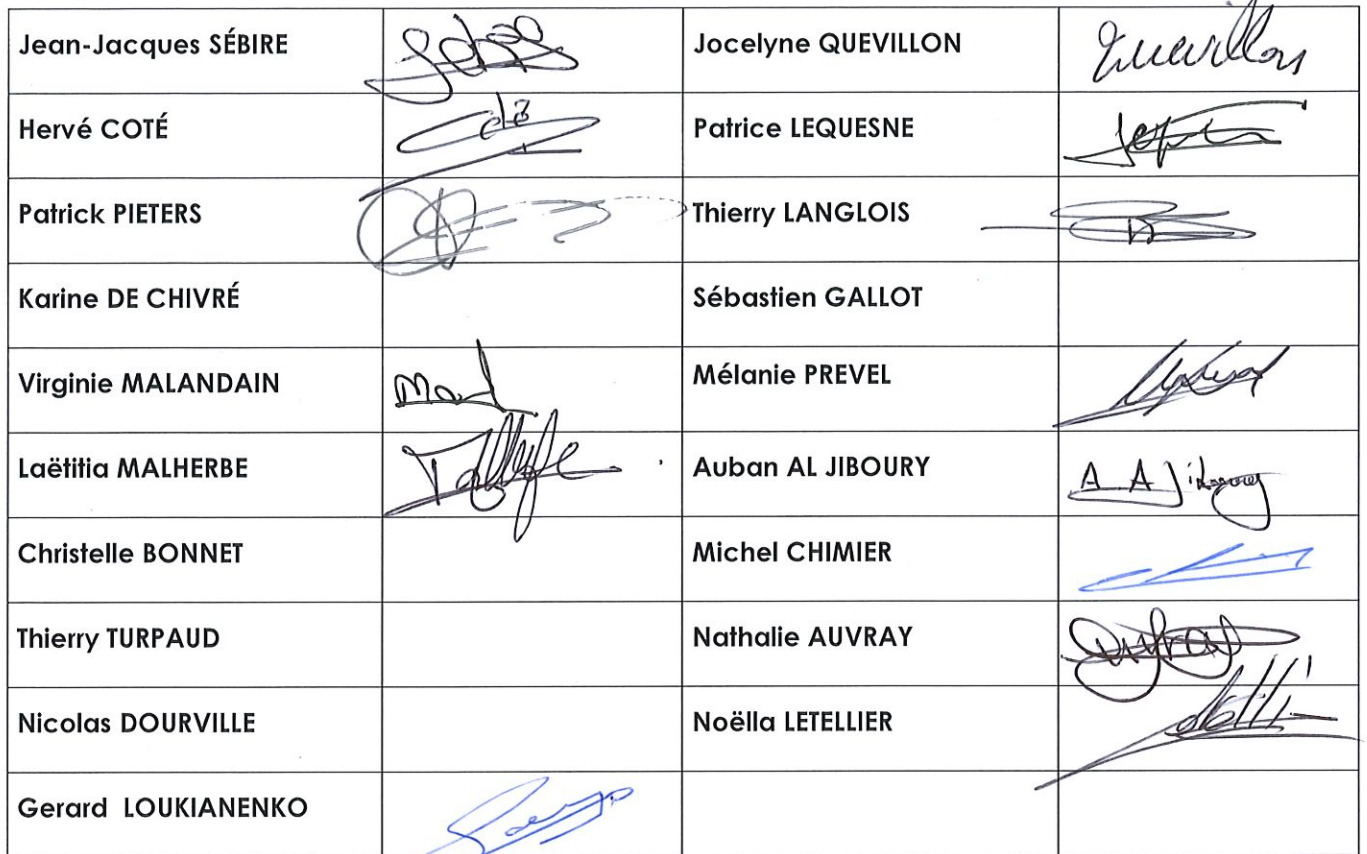 Jean-Jacques SÉBIRE
Jocelyne QUEVILLON
Quevillon
Hervé COTÉ
Patrice LEQUESNE
Patrick PIETERS
Thierry LANGLOIS
Karine DE CHIVRÉ
Sébastien GALLOT
Virginie MALANDAIN
Mélanie PREVEL
Laëtitia MALHERBE
Auban AL JIBOURY
A A Jiboury
Christelle BONNET
Michel CHIMIER
Thierry TURPAUD
Nathalie AUVRAY
Nicolas DOURVILLE
Noëlla LETELLIER
Gerard LOUKIANENKO